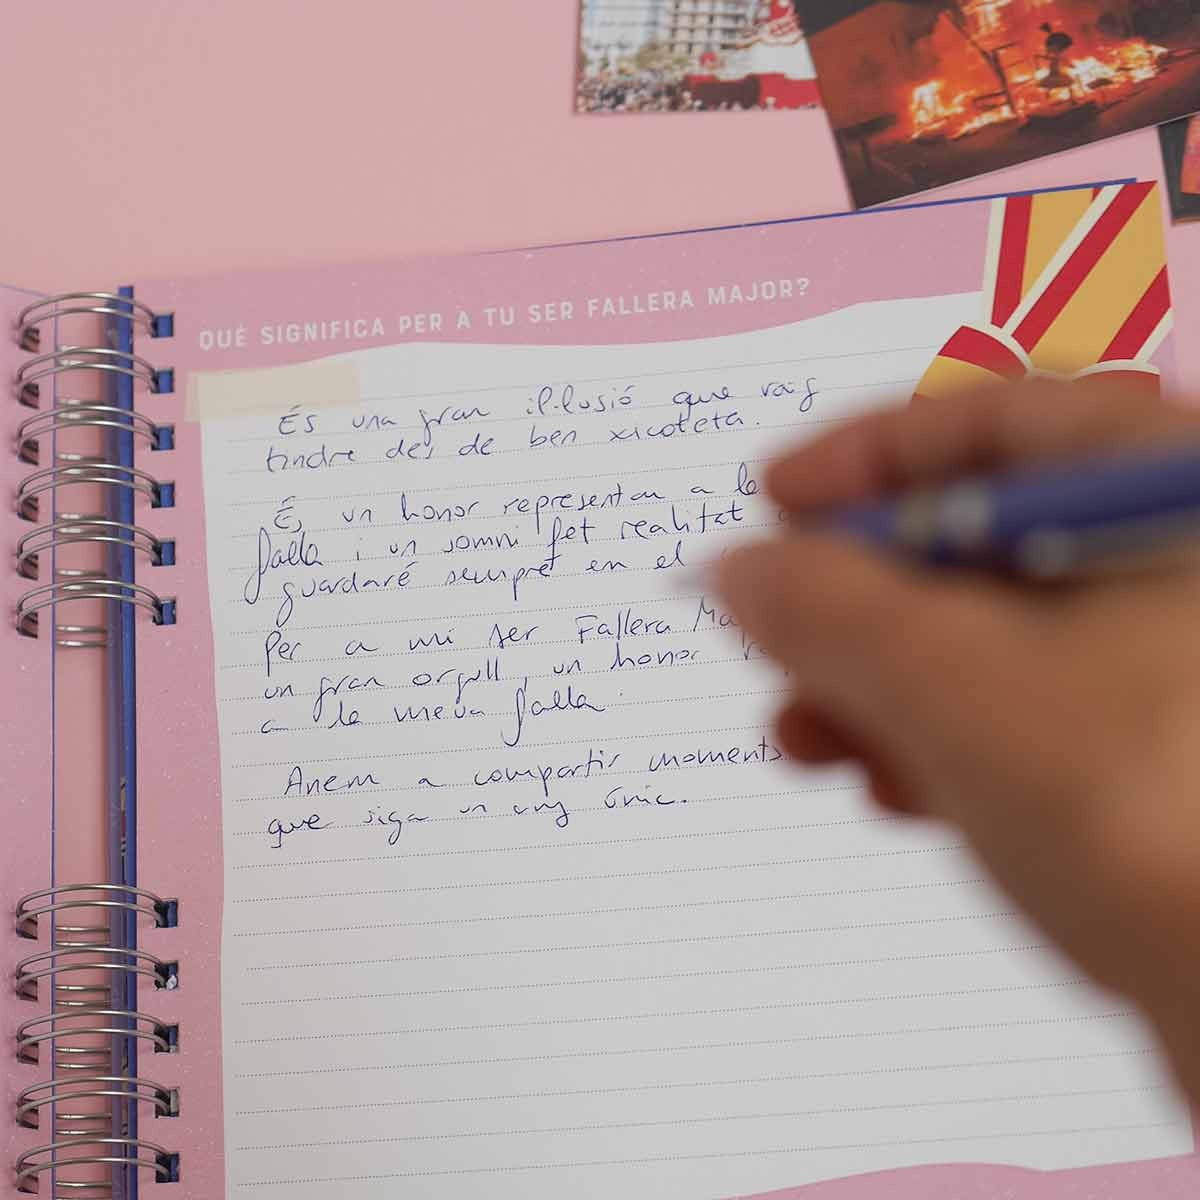 QUÈ SIGNIFICA PER A TU SER FALLERA MAJOR?
És una gran il·lusió que vaig
tindre des de ben xicoteta.
És un honor representar a la
falla i un somni fet realitat
guardaré sempre en el
Per a mi ser Fallera Ma
un gran orgull, un honor
a la meua falla.
Anem a compartir moments
que siga un any únic.